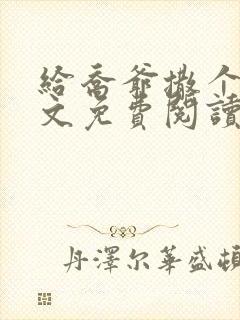 給喬爺撒个
文免費閱讀
丹澤尔華盛頓